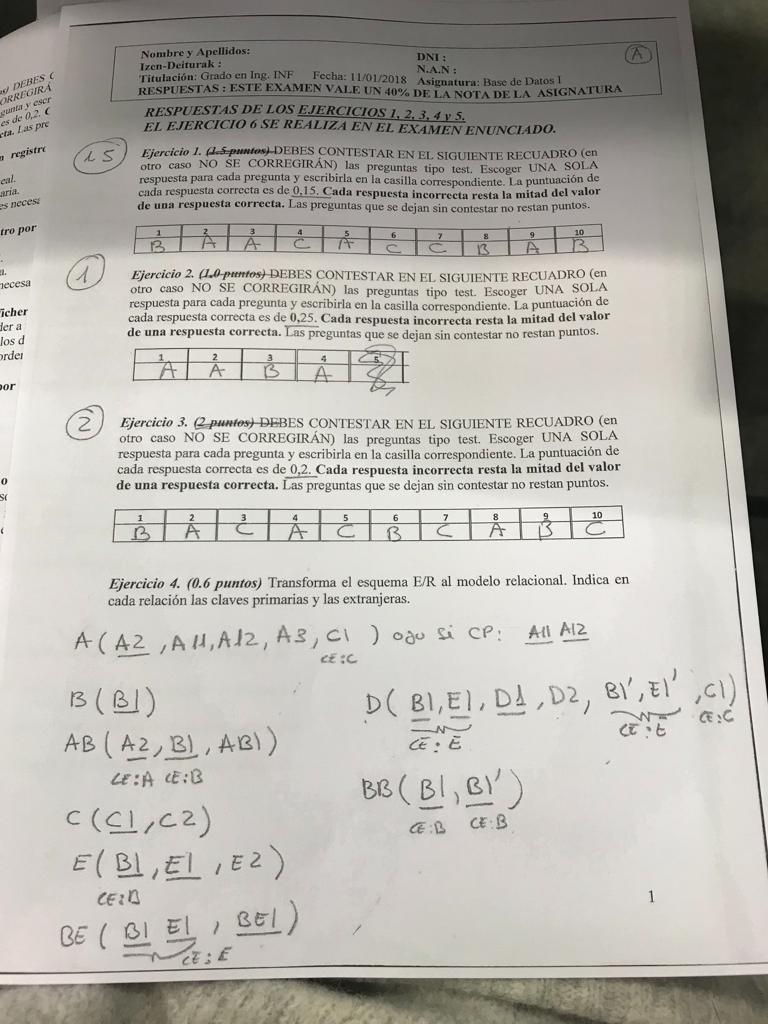 Nombre y Apellidos:
DNI :
Izen-Deiturak :
N.A.N :
A
Titulación: Grado en Ing. INF Fecha: 11/01/2018 Asignatura: Base de Datos I
RESPUESTAS : ESTE EXAMEN VALE UN 40% DE LA NOTA DE LA ASIGNATURA
RESPUESTAS DE LOS EJERCICIOS 1, 2, 3, 4 y 5.
EL EJERCICIO 6 SE REALIZA EN EL EXAMEN ENUNCIADO.
1.5
Ejercicio 1. (1.5 puntos) DEBES CONTESTAR EN EL SIGUIENTE RECUADRO (en
otro caso NO SE CORREGIRÁN) las preguntas tipo test. Escoger UNA SOLA
respuesta para cada pregunta y escribirla en la casilla correspondiente. La puntuación de
cada respuesta correcta es de 0,15. Cada respuesta incorrecta resta la mitad del valor
de una respuesta correcta. Las preguntas que se dejan sin contestar no restan puntos.
1 2 3 4 5 6 7 8 9 10
B A A C A C C B A B
1
Ejercicio 2. (1.0 puntos) DEBES CONTESTAR EN EL SIGUIENTE RECUADRO (en
otro caso NO SE CORREGIRÁN) las preguntas tipo test. Escoger UNA SOLA
respuesta para cada pregunta y escribirla en la casilla correspondiente. La puntuación de
cada respuesta correcta es de 0,25. Cada respuesta incorrecta resta la mitad del valor
de una respuesta correcta. Las preguntas que se dejan sin contestar no restan puntos.
1 2 3 4 5
A A B A
2
Ejercicio 3. (2 puntos) DEBES CONTESTAR EN EL SIGUIENTE RECUADRO (en
otro caso NO SE CORREGIRÁN) las preguntas tipo test. Escoger UNA SOLA
respuesta para cada pregunta y escribirla en la casilla correspondiente. La puntuación de
cada respuesta correcta es de 0,2. Cada respuesta incorrecta resta la mitad del valor
de una respuesta correcta. Las preguntas que se dejan sin contestar no restan puntos.
1 2 3 4 5 6 7 8 9 10
B A C A C B C A B C
Ejercicio 4. (0.6 puntos) Transforma el esquema E/R al modelo relacional. Indica en
cada relación las claves primarias y las extranjeras.
A ( A2 , A11, A12, A3, C1 ) ojo si CP: A11 A12
CE:C
B ( B1 )
D ( B1, E1, D1 , D2, B1', E1' , C1 )
CE: E CE: E CE:C
AB ( A2, B1 , AB1 )
CE:A CE:B
BB ( B1 , B1' )
CE:B CE:B
C ( C1 , C2 )
E ( B1 , E1 , E2 )
CE:B
BE ( B1 E1 , BE1 )
CE: E
1